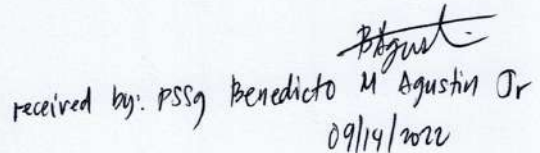 BAgust
received by: PSSg Benedicto M Agustin Jr
09/14/2022